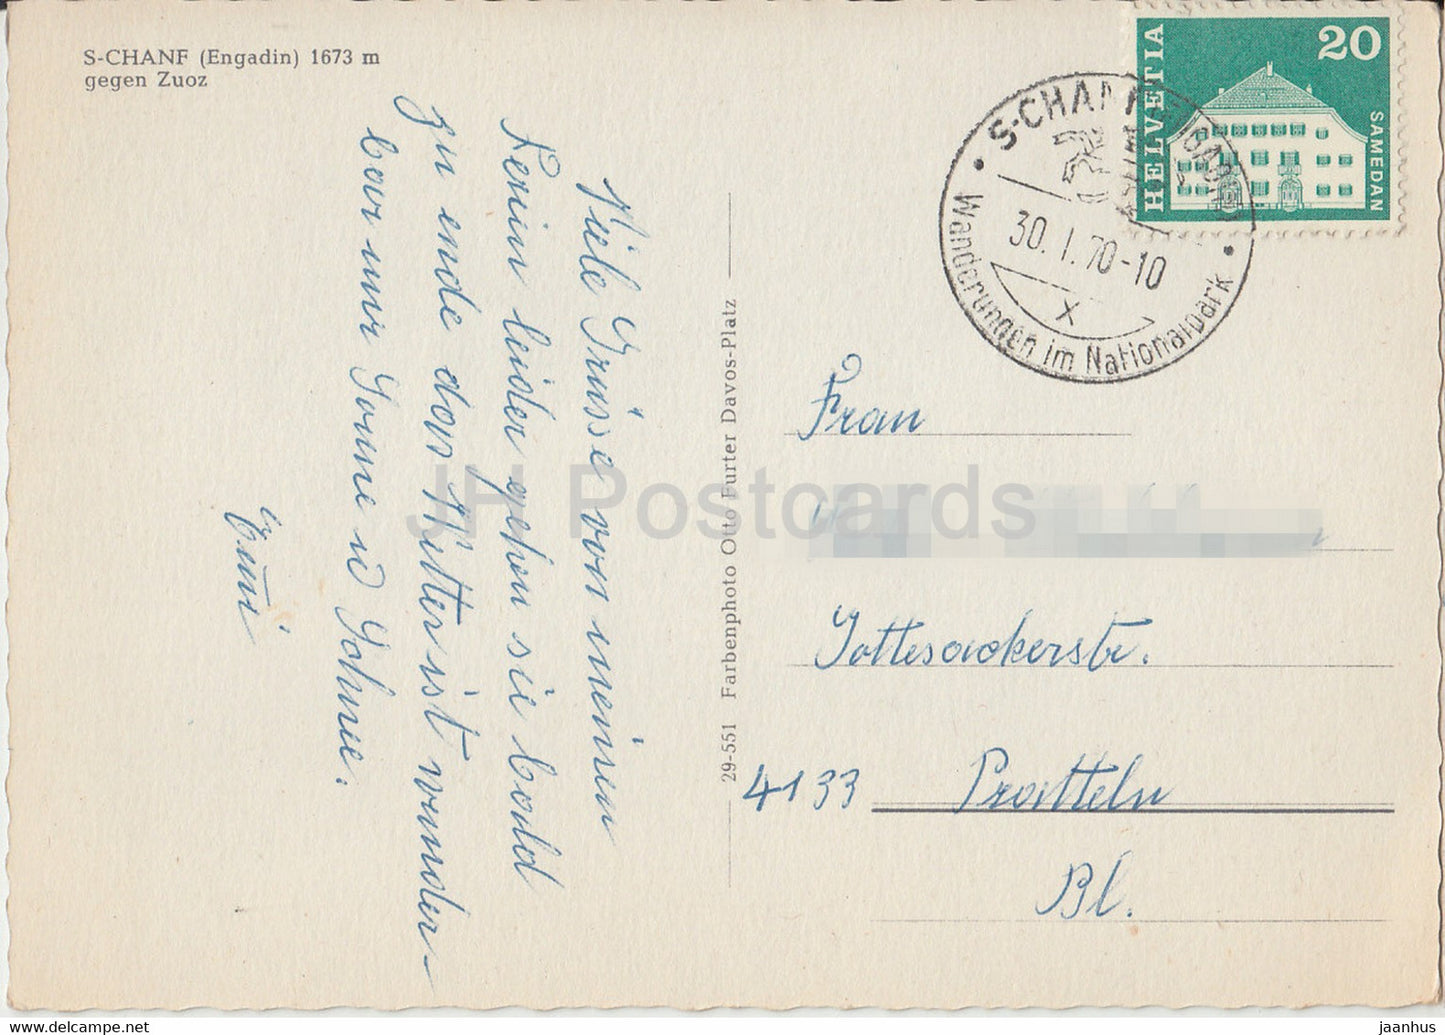 S-CHANF (Engadin) 1673 m
gegen Zuoz
Viele Grüsse von meinen
Ferien leider gehen sie bald
zu ende das Wetter ist wunder-
bar nur Sonne u Schnee.
29-551 Farbenphoto Otto Furter Davos-Platz
HELVETIA
20
SAMEDAN
S-CHANF
30.1.70-10
X
Wanderungen im Nationalpark
Frau
Gottesackerstr.
4133 Pratteln
Bl.
JH Postcards
S-CHANF (Engadin) 1673 m gegen Zuoz - 1970 - Switzerland - used
jaanhus